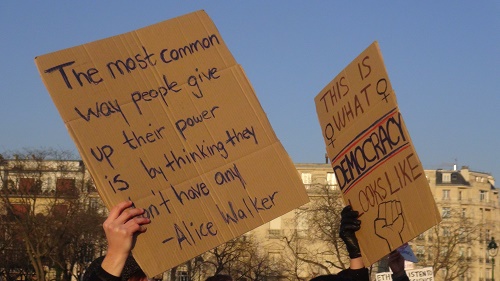 The most common
way people give
up their power
is by thinking they
don't have any
-Alice Walker
THIS IS
WHAT
DEMOCRACY
LOOKS LIKE